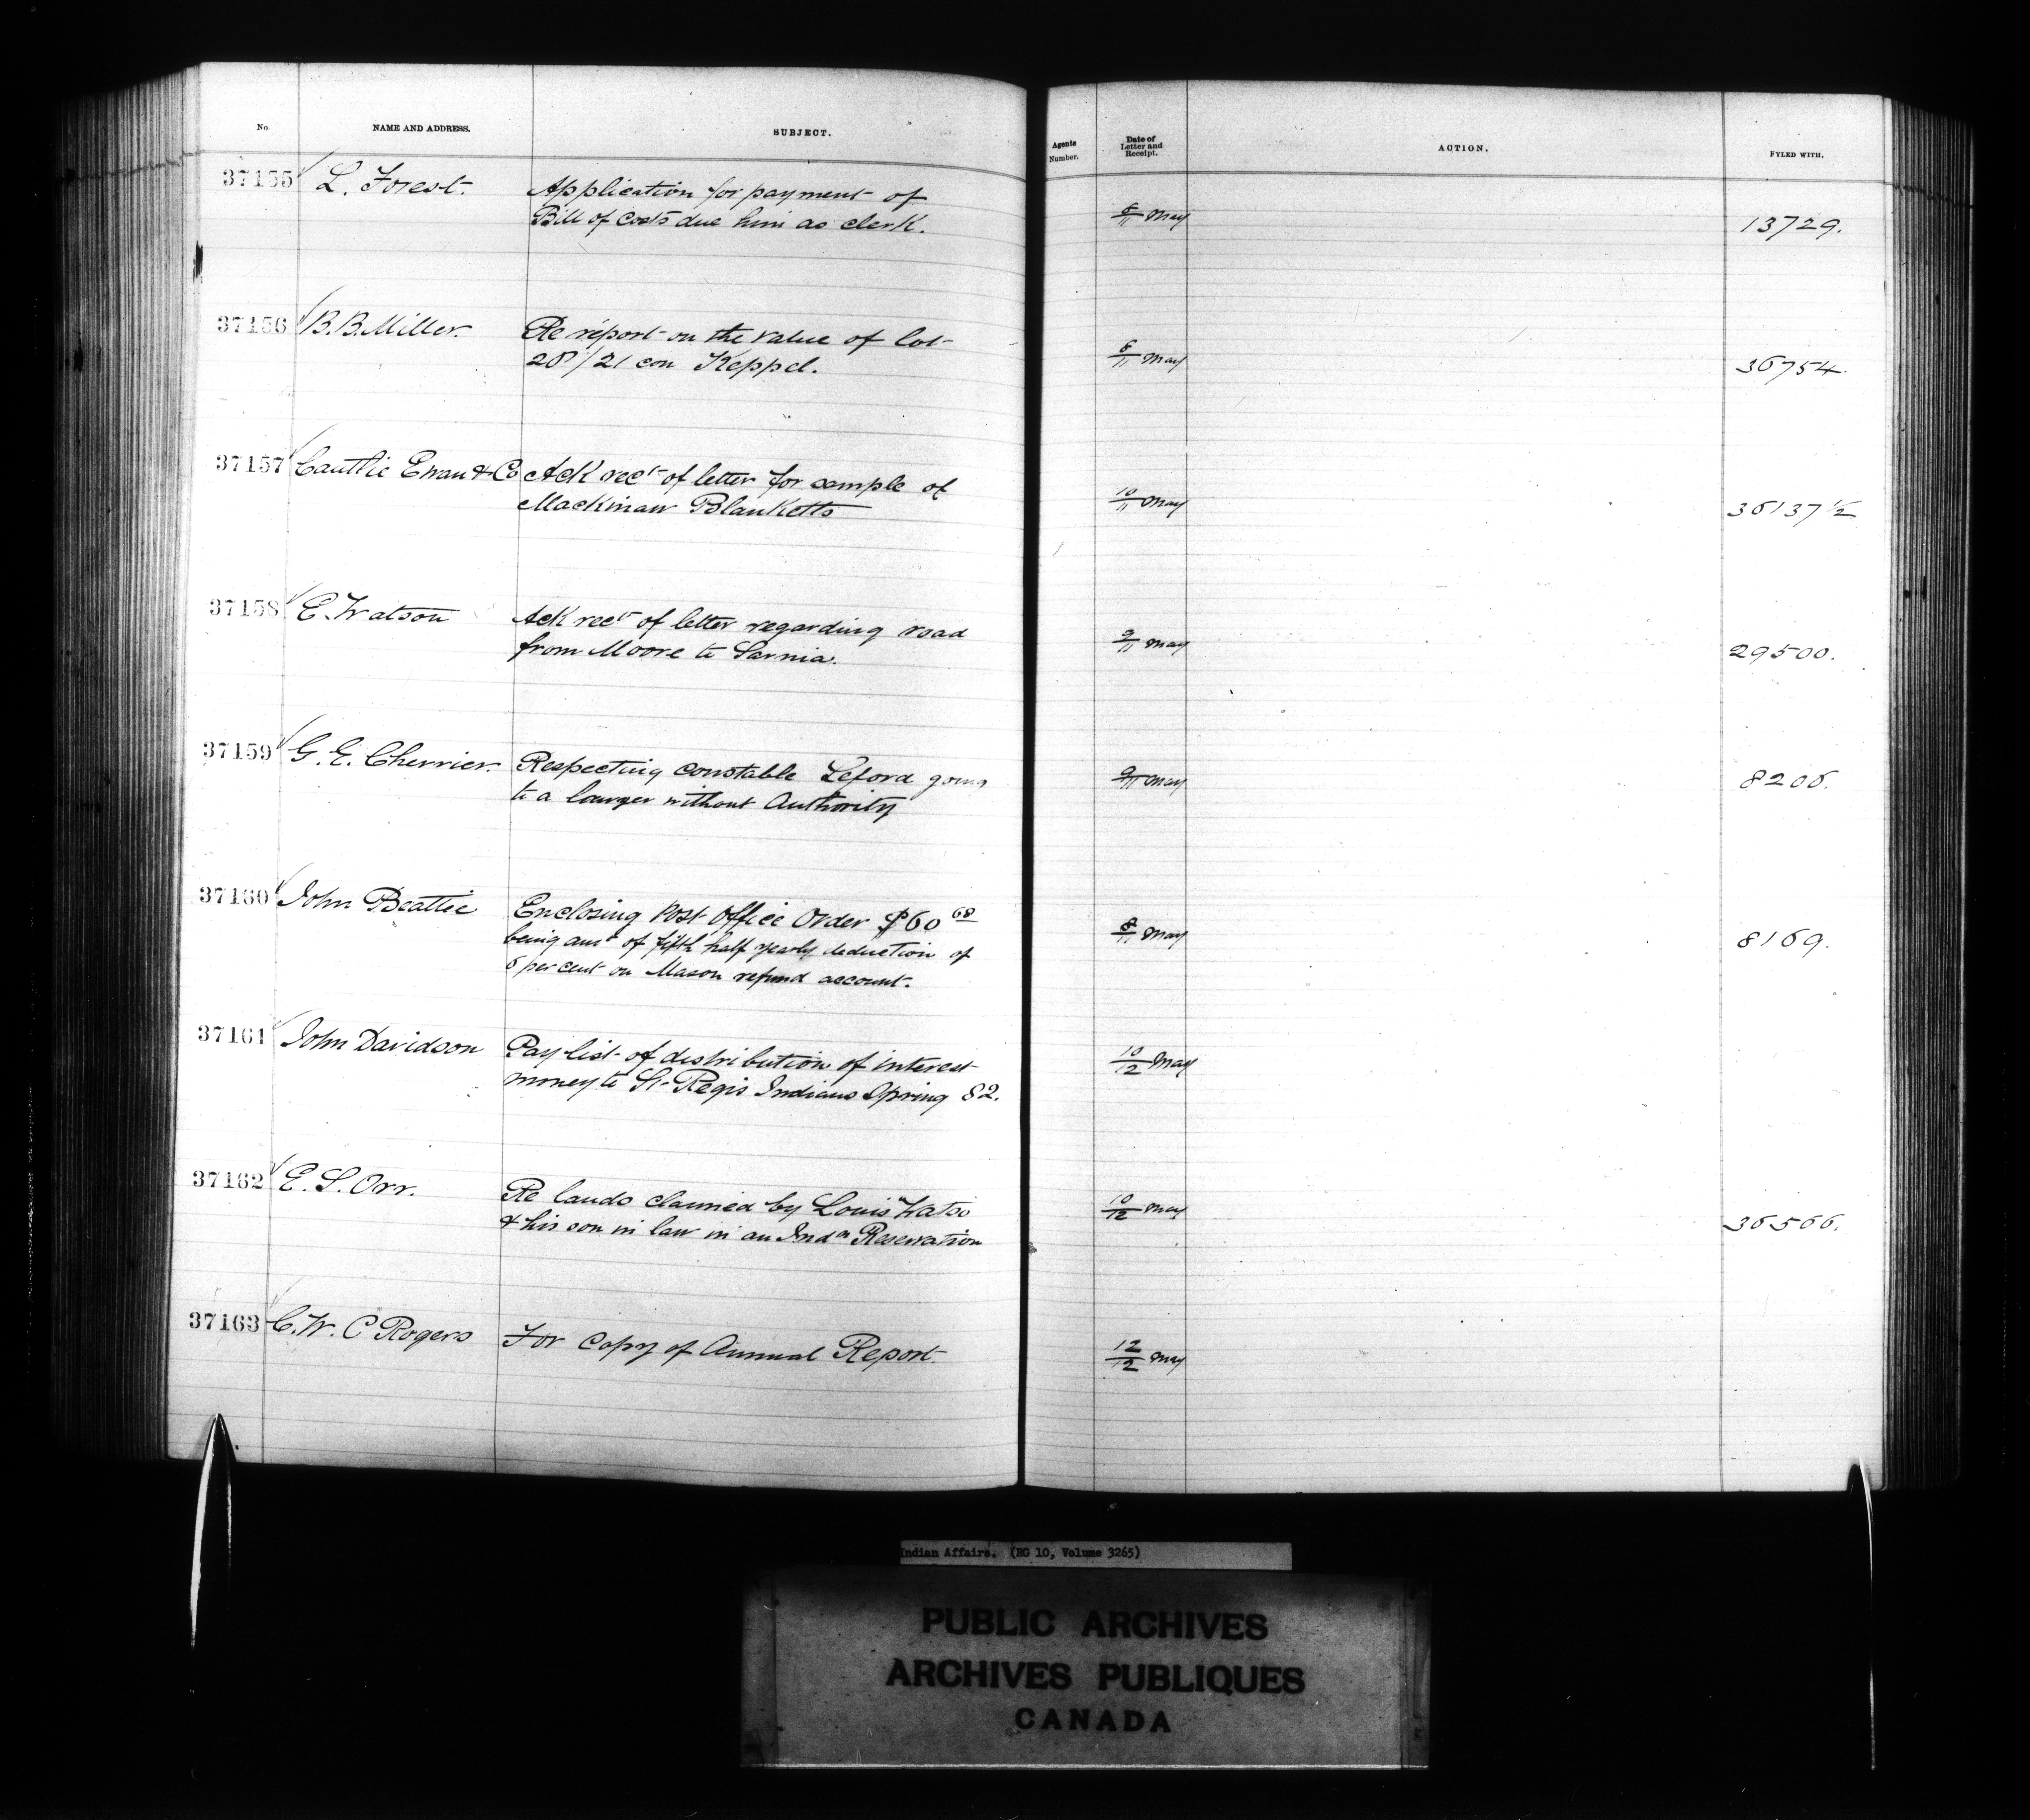 No. NAME AND ADDRESS. SUBJECT. Agents Number. Date of Letter and Receipt. ACTION. FYLED WITH.
37155 L. Forest. Application for payment of
Bill of Costs due him as clerk. 8/11 May 13729.
37156 B. B. Miller. Re report on the value of lot
28/21 con Keppel. 8/11 May 36754.
37157 Cautlie Ewan & Co Ack rect of letter for sample of
Mackinaw Blanketts 10/11 May 36137 1/2
37158 E. Watson Ack rect of letter regarding road
from Moore to Sarnia. 9/11 May 29500.
37159 G. E. Cherrier. Respecting constable Leford going
to a lawyer without Authority 9/11 May 8206.
37160 John Beattie Enclosing Post Office Order $60 68
being amt of fifth half yearly deduction of
6 per cent on Mason refund account. 8/11 May 8169.
37161 John Davidson Pay list of distribution of interest
money to St Regis Indians Spring 82. 10/12 May
37162 E. S. Orr. Re lands claimed by Louis Watso
& his son in law in an Indn Reservation 10/12 May 36566.
37163 C. W. C Rogers For Copy of Annual Report. 12/12 May
Indian Affairs. (RG 10, Volume 3265)
PUBLIC ARCHIVES
ARCHIVES PUBLIQUES
CANADA